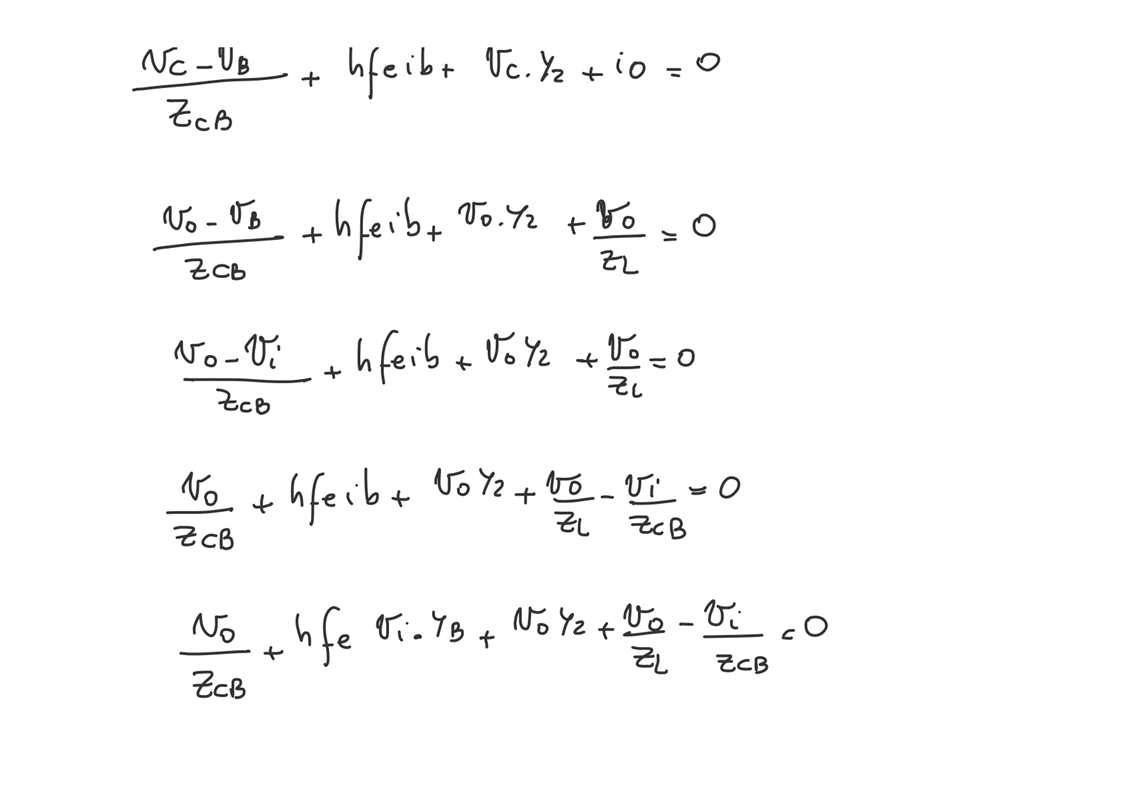 (Vc - VB)/ZCB + hfe ib + Vc . Y2 + io = 0
(Vo - VB)/ZCB + hfe ib + Vo . Y2 + Vo/ZL = 0
(Vo - Vi)/ZCB + hfe ib + Vo Y2 + Vo/ZL = 0
Vo/ZCB + hfe ib + Vo Y2 + Vo/ZL - Vi/ZCB = 0
Vo/ZCB + hfe Vi . YB + Vo Y2 + Vo/ZL - Vi/ZCB = 0